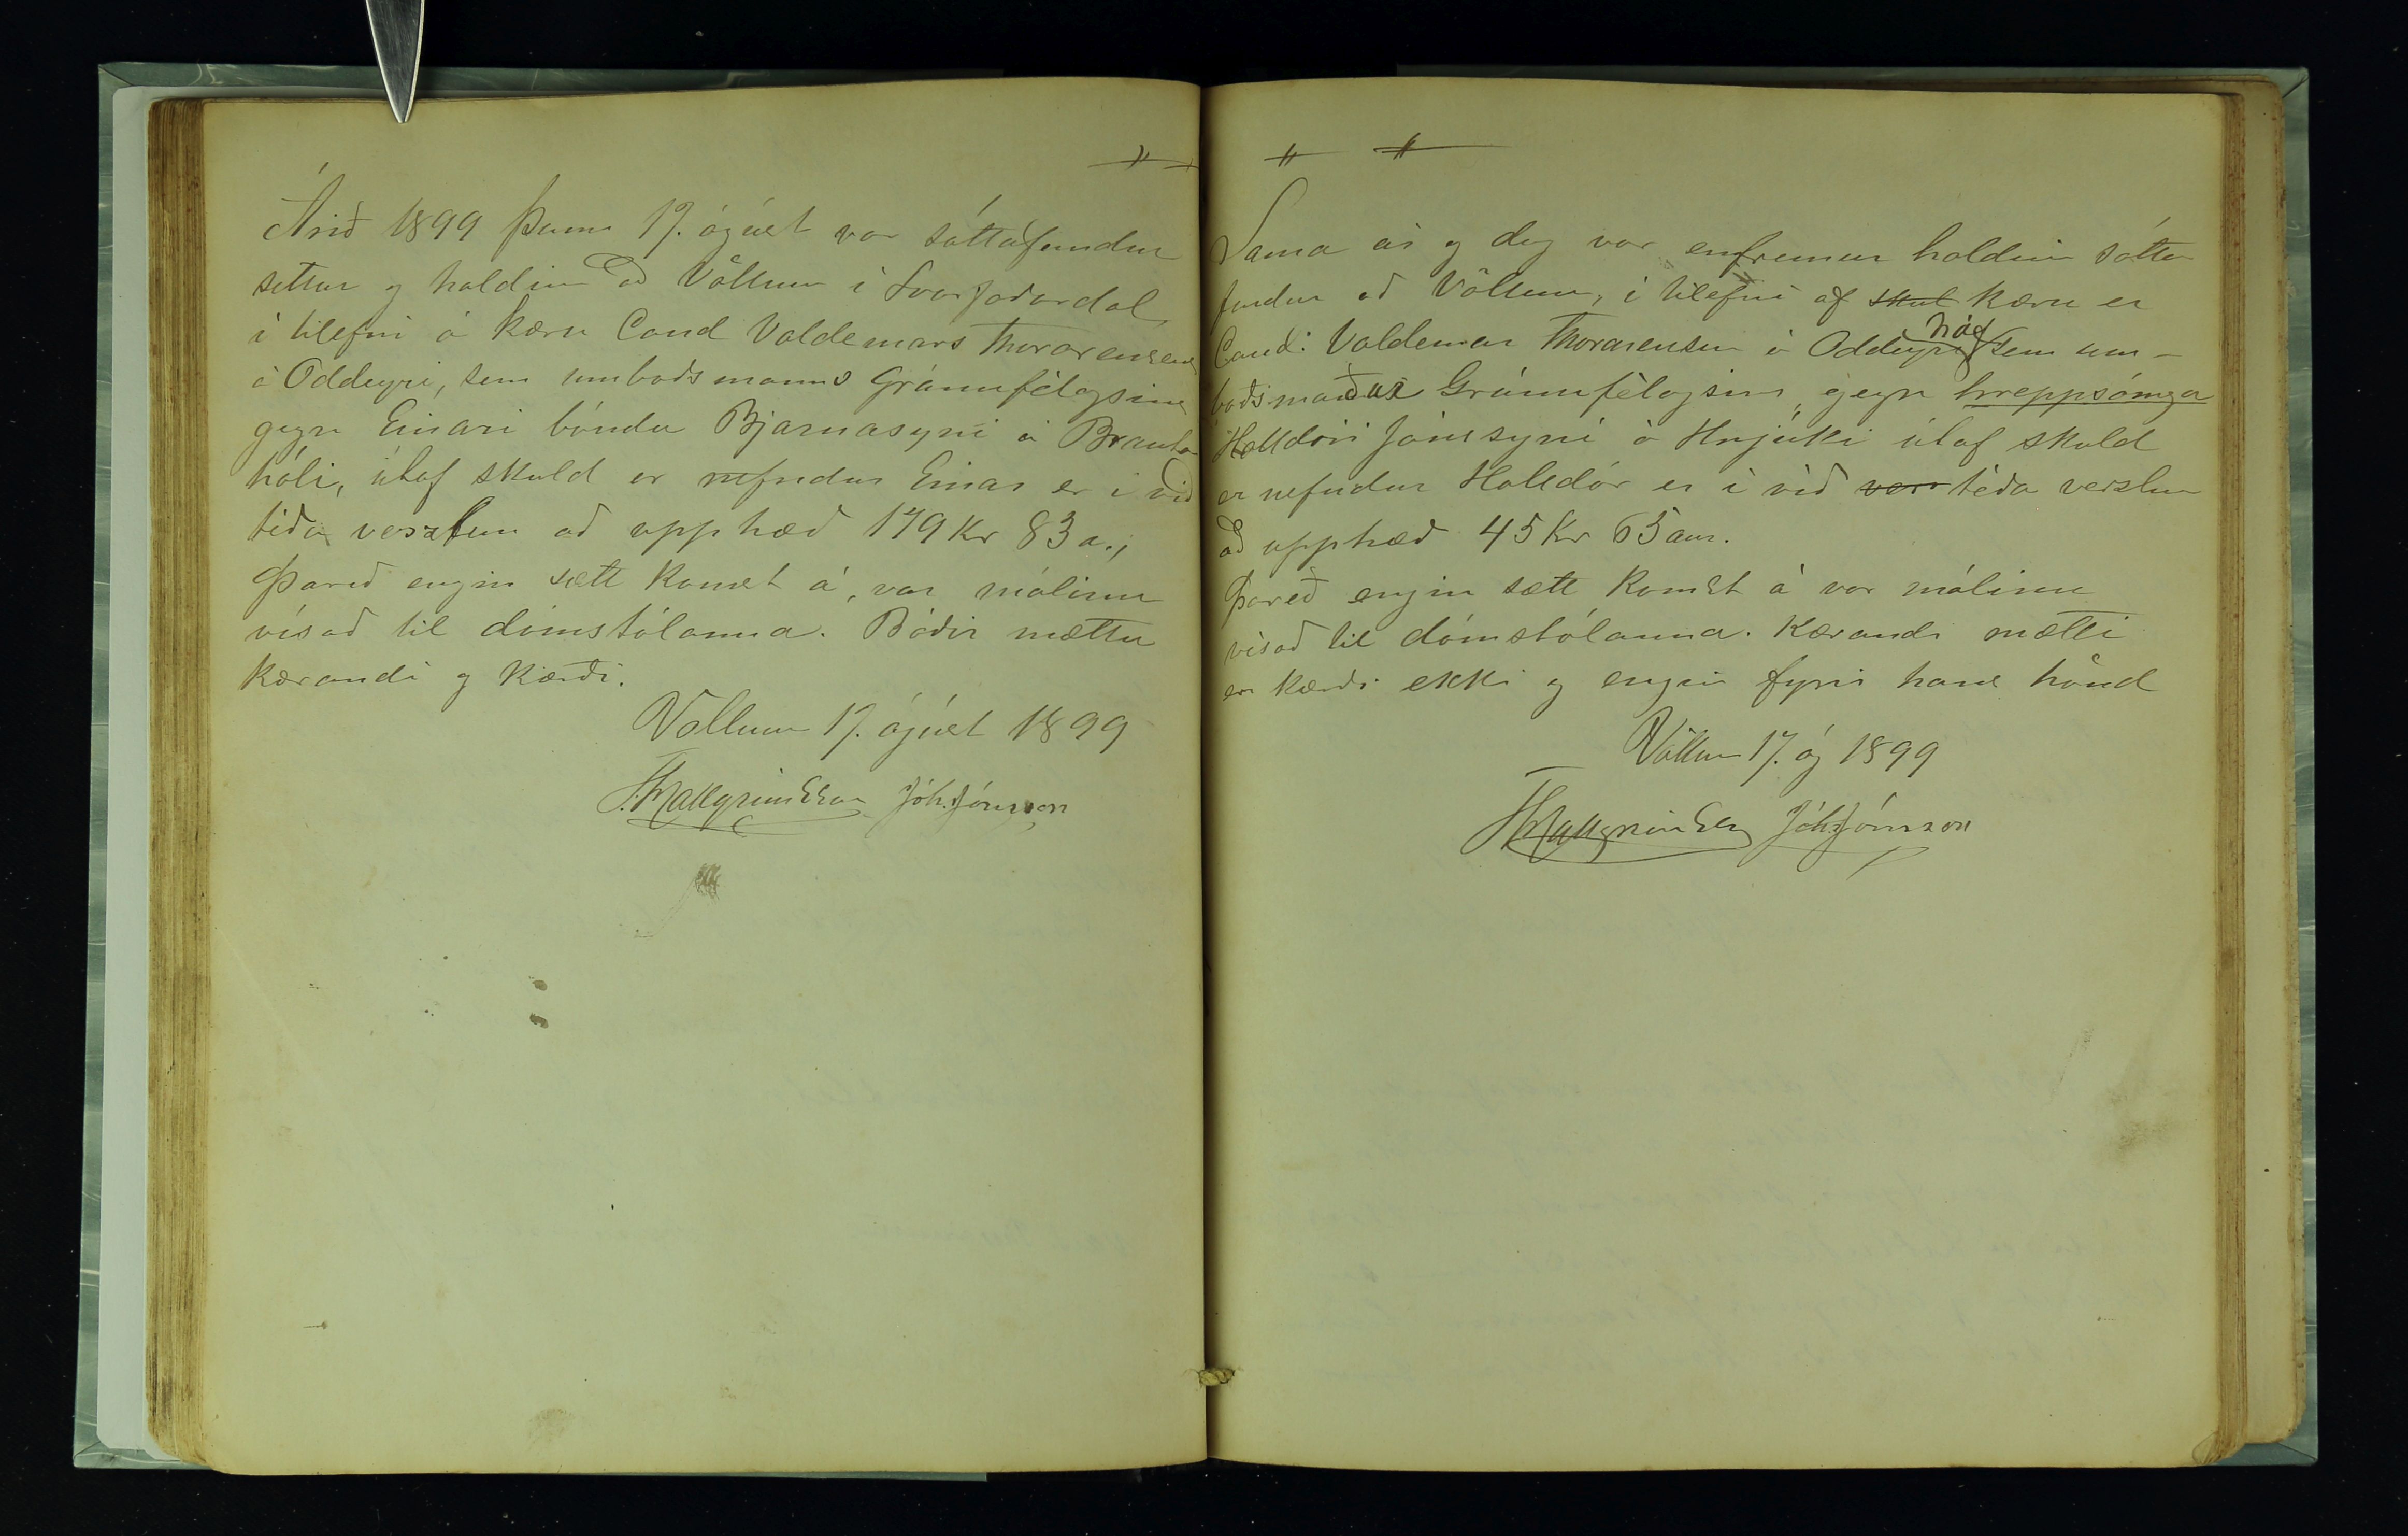 Árið 1899 þann 17. ágúst var sáttafundur
settur og haldinn að Völlum í Svarfaðardal,
í tilefni á kæru Cand Valdemars Thorarensens
á Oddeyri, sem umboðsmanns Gránufélagsins
gegn Einari bónda Bjarnasyni á Brauta
hóli, útaf skuld er nefndur Einar er í við
téða verzlun að upphæð 179 Kr 83 a.,
Þareð engin sætt komst á, var málinu
vísað til dómstólanna. Báðir mættu
kærandi og kærði.
Völlum 17. ágúst 1899
T. Hallgrímsson Jóh. Jónsson
Sama ár og dag var enfremur haldin sátta
fundur að Völlum, í tilefni af skul kæru er
Cand: Valdemar Thorarensen á Oddeyri hóf sem um-
boðsmaður Gránufélagsins, gegn hreppsómaga
Halldóri Jónssyni á Hnjúki útaf skuld
er nefndur Halldór er í við vers téða verslun
að upphæð 45 Kr 65 aur.
Þareð engin sætt komst á var málinu
vísað til dómstólanna. Kærandi mætti
en kærði ekki og engin fyrir hans hönd
Völlum 17. ág 1899
T Hallgrímsson Jóh. Jónsson